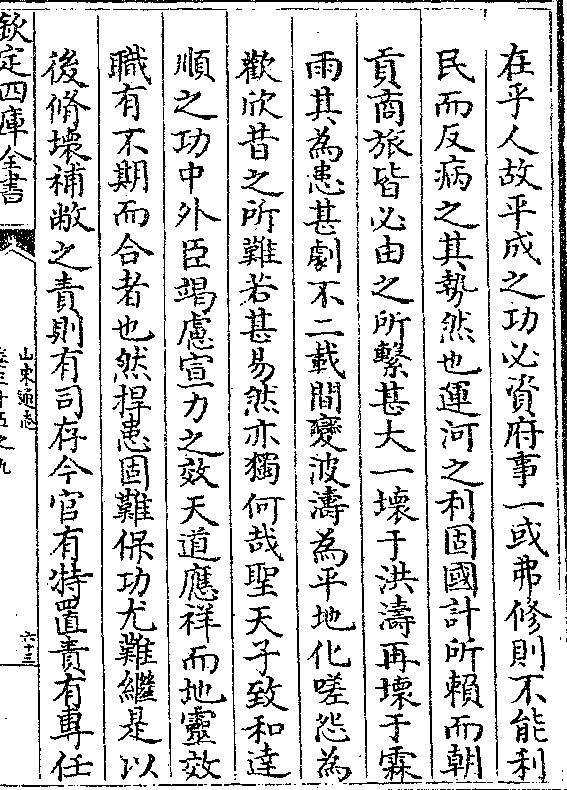 在乎人故平成之功必資府事一或弗修則不能利
民而反病之其勢然也運河之利固國計所賴而朝
貢商旅皆必由之所繫甚大一壞于洪濤再壞于霖
雨其為患甚劇不二載間變波濤為平地化嗟怨為
歡欣昔之所難若甚易然亦獨何哉聖天子致和達
順之功中外臣竭慮宣力之效天道應祥而地靈效
職有不期而合者也然捍患固難保功尤難繼是以
後脩壞補敝之責則有司存今官有特置責有專任
欽定四庫全書
山東通志
卷三十五之九
六十三